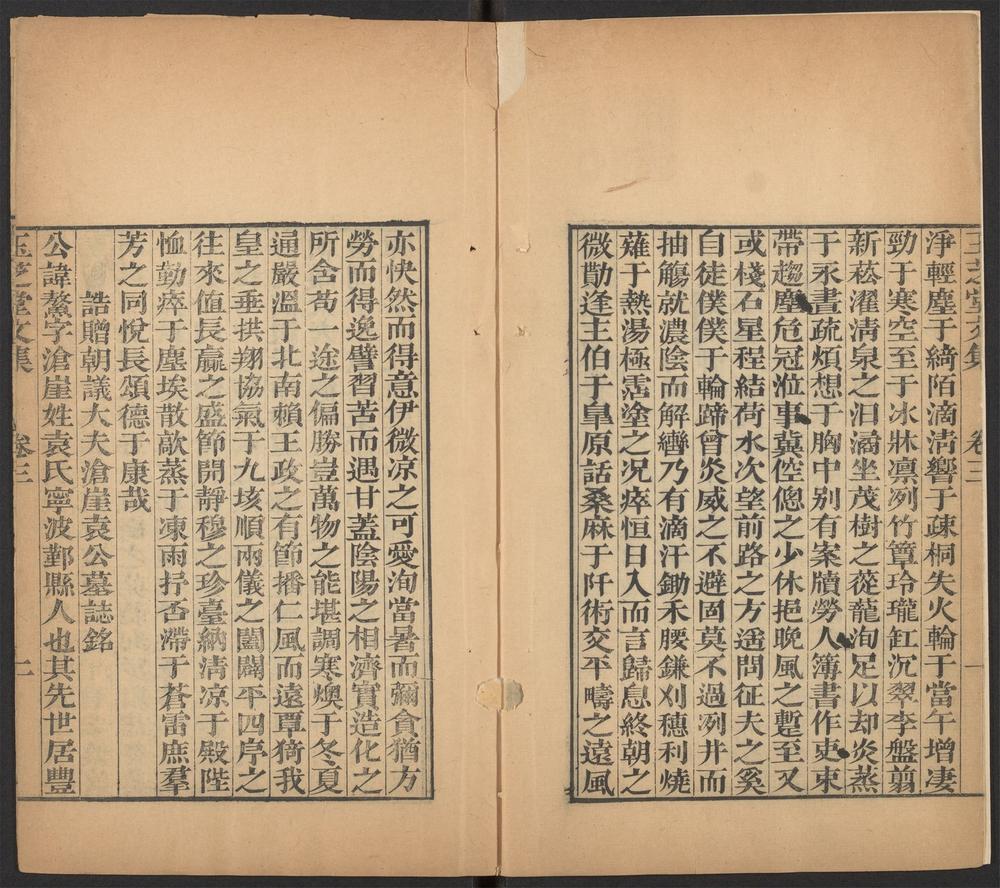 玉芝堂文集 卷三 一
淨輕塵于綺陌滴清響于疎桐失火輪于當午增凄
勁于寒空至于冰牀凛冽竹簟玲瓏缸沉翠李盤翦
新菘濯清泉之汩潏坐茂樹之蓯蘢洵足以却炎蒸
于永晝疏煩想于胸中别有案牘勞人簿書作吏束
帶趨塵危冠涖事冀倥傯之少休挹晚風之蹔至又
或棧石星程結荷水次望前路之方遥問征夫之奚
自徒僕僕于輪蹄曾炎威之不避固莫不過冽井而
抽觴就濃陰而解轡乃有滴汗鋤禾腰鎌刈穗利燒
薙于熱湯極霑塗之况瘁恒日入而言歸息終朝之
微勩逢主伯于臯原話桑麻于阡術交平疇之遠風
亦快然而得意伊微凉之可愛洵當暑而彌貪猶方
勞而得逸譬習苦而遇甘蓋陰陽之相濟實造化之
所含苟一途之偏勝豈萬物之能堪調寒燠于冬夏
逥嚴溫于北南賴王政之有節播仁風而遠覃猗我
皇之垂拱翔協氣于九垓順兩儀之闔闢平四序之
往來值長嬴之盛節開靜穆之珍臺納清凉于殿陛
恤勤瘁于塵埃散歊蒸于凍雨抒否滯于蒼雷庶羣
芳之同悅長頌德于康哉
誥贈朝議大夫滄崖袁公墓誌銘
公諱鰲字滄崖姓袁氏寧波鄞縣人也其先世居豐
玉芝堂文集 卷三 二